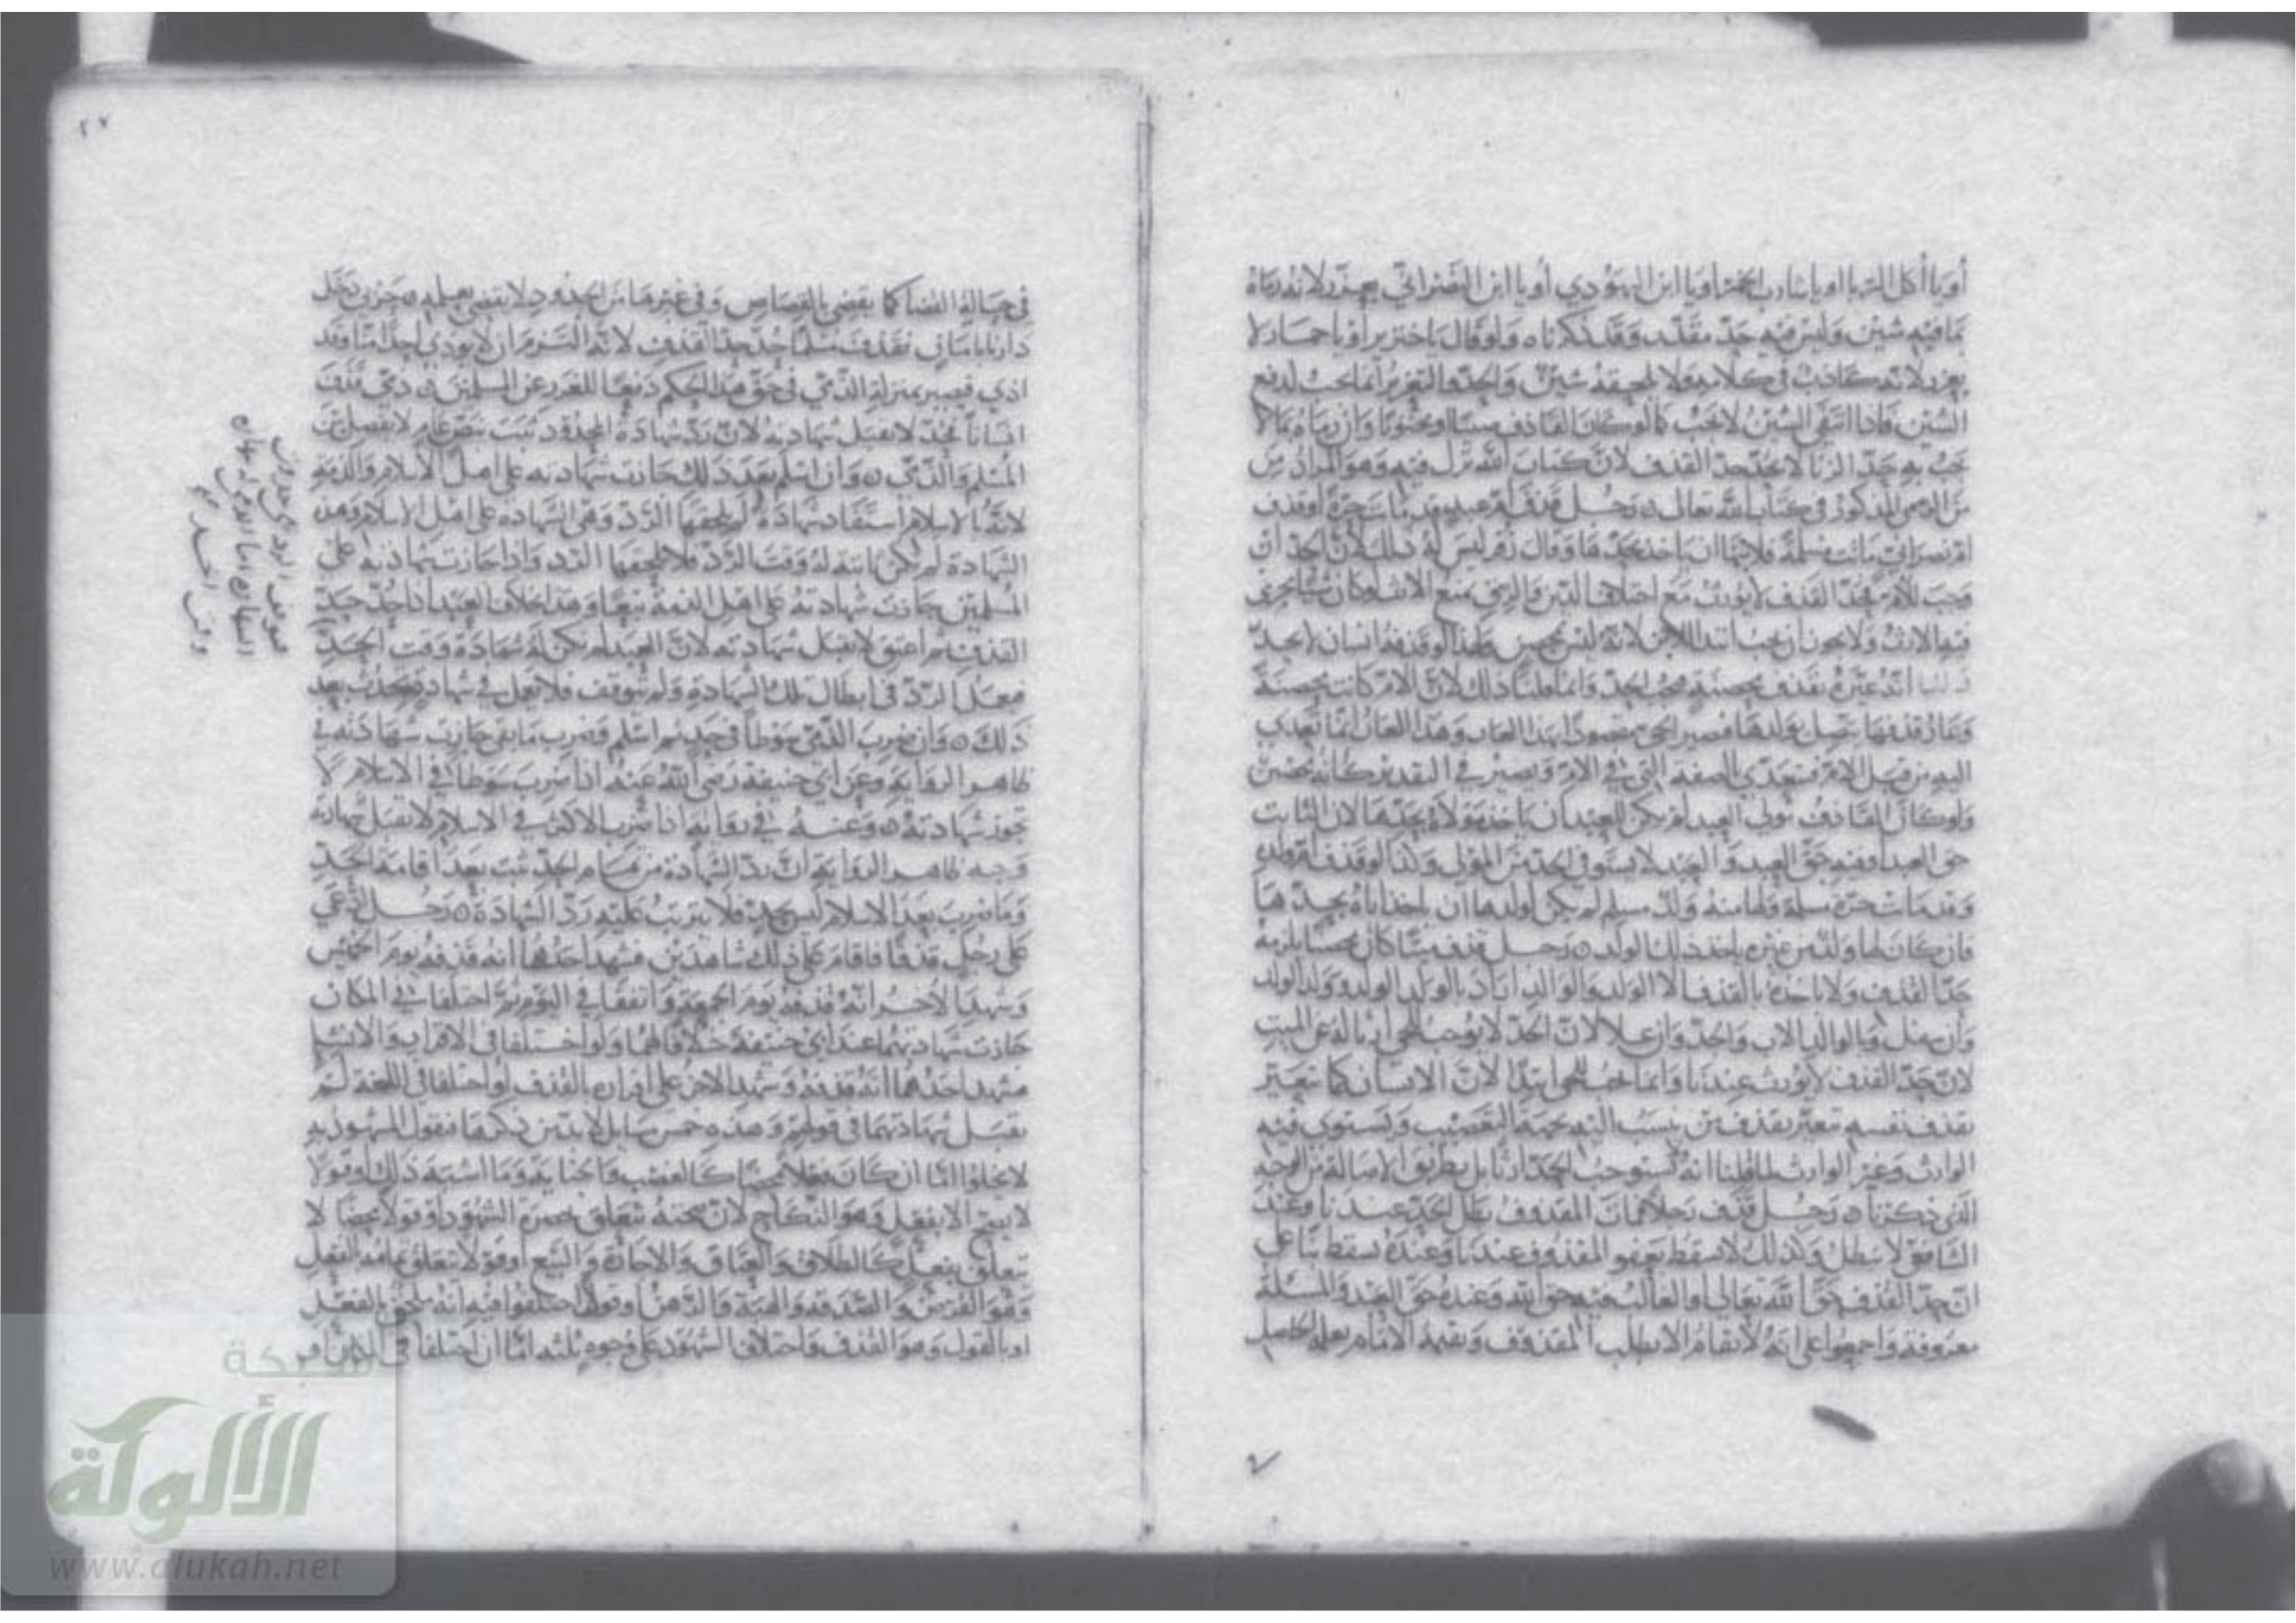 أو يا آكل الربا او يا شارب الخمر او يا ابن اليهودي أو يا ابن النصراني يعزر لانه رماه
بما فيه شين وليس فيه حد مقدر وقد ذكرناه ولو قال يا خنزير او يا حمار لا
يعزر لانه كاذب في كلامه ولا يلحقه شين واحد والتعزير انما يجب لدفع
الشين فاذا انتفى الشين لا يجب كما لو كان القاذف صبيا او مجنونا وان رماه بما لا
يجب به حد الزنا لا يحد حد القذف لان كتاب الله نزل فيه وهو المراد من
من الرمي المذكور في كتاب الله تعالى ه رجل قذف ام عبد وقد ماتت حرة أو قذف
ام نصراني ماتت مسلمة فلابنها ان يأخذ بحدها وقال زفر ليس له ذلك لأن الحد ان
وجب للأم فحد القذف لا يورث مع اختلاف الدين والرق يمنع الارث لو كان شيئا يجري
فيه الارث ولا يجوز أن يجب ابتداء للابن لانه ليس بمحصن ولهذا لو قذفه انسان لا يحد
لنا انه عيره بقذف محصنة فيجب الحد وانما قلنا ذلك لان الام كانت محصنة
وعار قذفها يتصل بولدها فيصير الحي مقصودا بهذا العار وهذا العار انما تعدى
اليه من قبل الام فتتعدى الصفة التي في الام ويصير في التقدير كأنه محصن
ولو كان القاذف مولى العبد لم يكن للعبد ان يأخذ مولاه بحدها لان الثابت
حق العبد او فيه حق العبد والعبد لا يستوفي الحد من المولى وكذا لو قذف ام ولده
وقد ماتت حرة مسلمة ولها منه ولد مسلم لم يكن لولدها ان يأخذ اباه بحدها
فان كان لها ولد من غيره يأخذ ذلك الولد ه رجل قذف ميتا كان محصنا يلزمه
حد القذف ولا يأخذه بالقذف الا الولد والوالد اراد بالولد الولد وولد الولد
وان سفل وبالوالد الاب والجد وان علا لان الحد لا يوجب للحي ارثا له عن الميت
لان حد القذف لا يورث عندنا وانما يجب للحي ابتداء لأن الانسان كما يتعير
بقذف نفسه يتعير بقذف من ينسب اليه بجهة التعصيب ويستوي فيه
الوارث وغير الوارث لما قلنا انه يستوجب الحد لا ارثا بل بطريق الاصالة من الوجه
الذي ذكرنا ه رجل قذف رجلا فمات المقذوف بطل الحد عندنا وعند
الشافعي لا يبطل وكذلك لا يسقط بعفو المقذوف عندنا وعنده يسقط بناء على
ان حد القذف حق الله تعالى او الغالب فيه حق الله وعنده حق العبد والمسئلة
معروفة واجمعوا على انه لا يقام الا بطلب المقذوف ويقيمه الامام بعلمه الحاصل
٢٧
في حالة القضا كما يقضي بالقصاص وفي غيرها من الحدود لا يقضي بعلمه ه حربي دخل
دارنا بامان فقذف مسلما حد حد القذف لانه التزم ان لا يؤذي احدا منا وقد
اذى فيصير بمنزلة الذمي في حق هذا الحكم دفعا للضرر عن المسلمين ه ذمي قذف
انسانا فحد لا تقبل شهادته لان رد شهادة المحدود ثبت بنص عام لا تفصيل بين
المسلم والذمي ه وان اسلم بعد ذلك جازت شهادته على اهل الاسلام والذمة
لانه بالاسلام استفاد شهادة لم يلحقها الرد وهي الشهادة على اهل الاسلام وهذه
الشهادة لم تكن ثابتة له وقت الرد فلا يلحقها الرد واذا جازت شهادته على
المسلمين جازت شهادته على اهل الذمة تبعا وهذا بخلاف العبد اذا حد حد
القذف ثم اعتق لا تقبل شهادته لان العبد لم تكن له شهادة وقت الحد
فيعمل الرد في ابطال تلك الشهادة ولم يتوقف فلا يعمل في شهادة تحدث بعد
ذلك ه وان ضرب الذمي سوطا في حد ثم اسلم وضرب ما بقي جازت شهادته في
ظاهر الرواية وعن ابي حنيفة رضي الله عنه اذا ضرب سوطا في الاسلام لا
تجوز شهادته ه وعنه في رواية اذا ضرب الاكثر في الاسلام لا تقبل شهادته
وجه ظاهر الرواية ان رد الشهادة من تمام الحد ثبت بعد اقامة الحد
وما ضرب بعد الاسلام ليس بحد فلا يترتب عليه رد الشهادة ه رجل ادعى
على رجل قذفا فاقام على ذلك شاهدين فشهد احدهما انه قذفه يوم الخميس
وشهد الاخر انه قذفه يوم الجمعة واتفقا في اليوم ثم اختلفا في المكان
جازت شهادتهما عند ابي حنيفة خلافا لهما ولو اختلفا في الاقرار والانشا
فشهد احدهما انه قذفه وشهد الاخر على اقراره بالقذف او اختلفا في اللغة لم
تقبل شهادتهما في قولهم وهذه خمس مسايل لا بد من ذكرها فنقول المشهود به
لا يخلو اما ان كان فعلا محضا كالغصب والجناية وما اشبه ذلك او قولا
لا يصح الا بفعل وهو النكاح لان صحته تتعلق بحضرة الشهود او قولا محضا لا
يتعلق بفعل كالطلاق والعتاق والاجارة والبيع او قولا تعلق تمامه بالفعل
وهو القرض والصدقة والهبة والرهن او قولا اختلفوا فيه انه ملحق بالفعل
او بالقول وهو القذف واختلاف الشهود على وجوه ثلثة اما ان اختلفا في الزمان او
شبكة
الألوكة
www.alukah.net